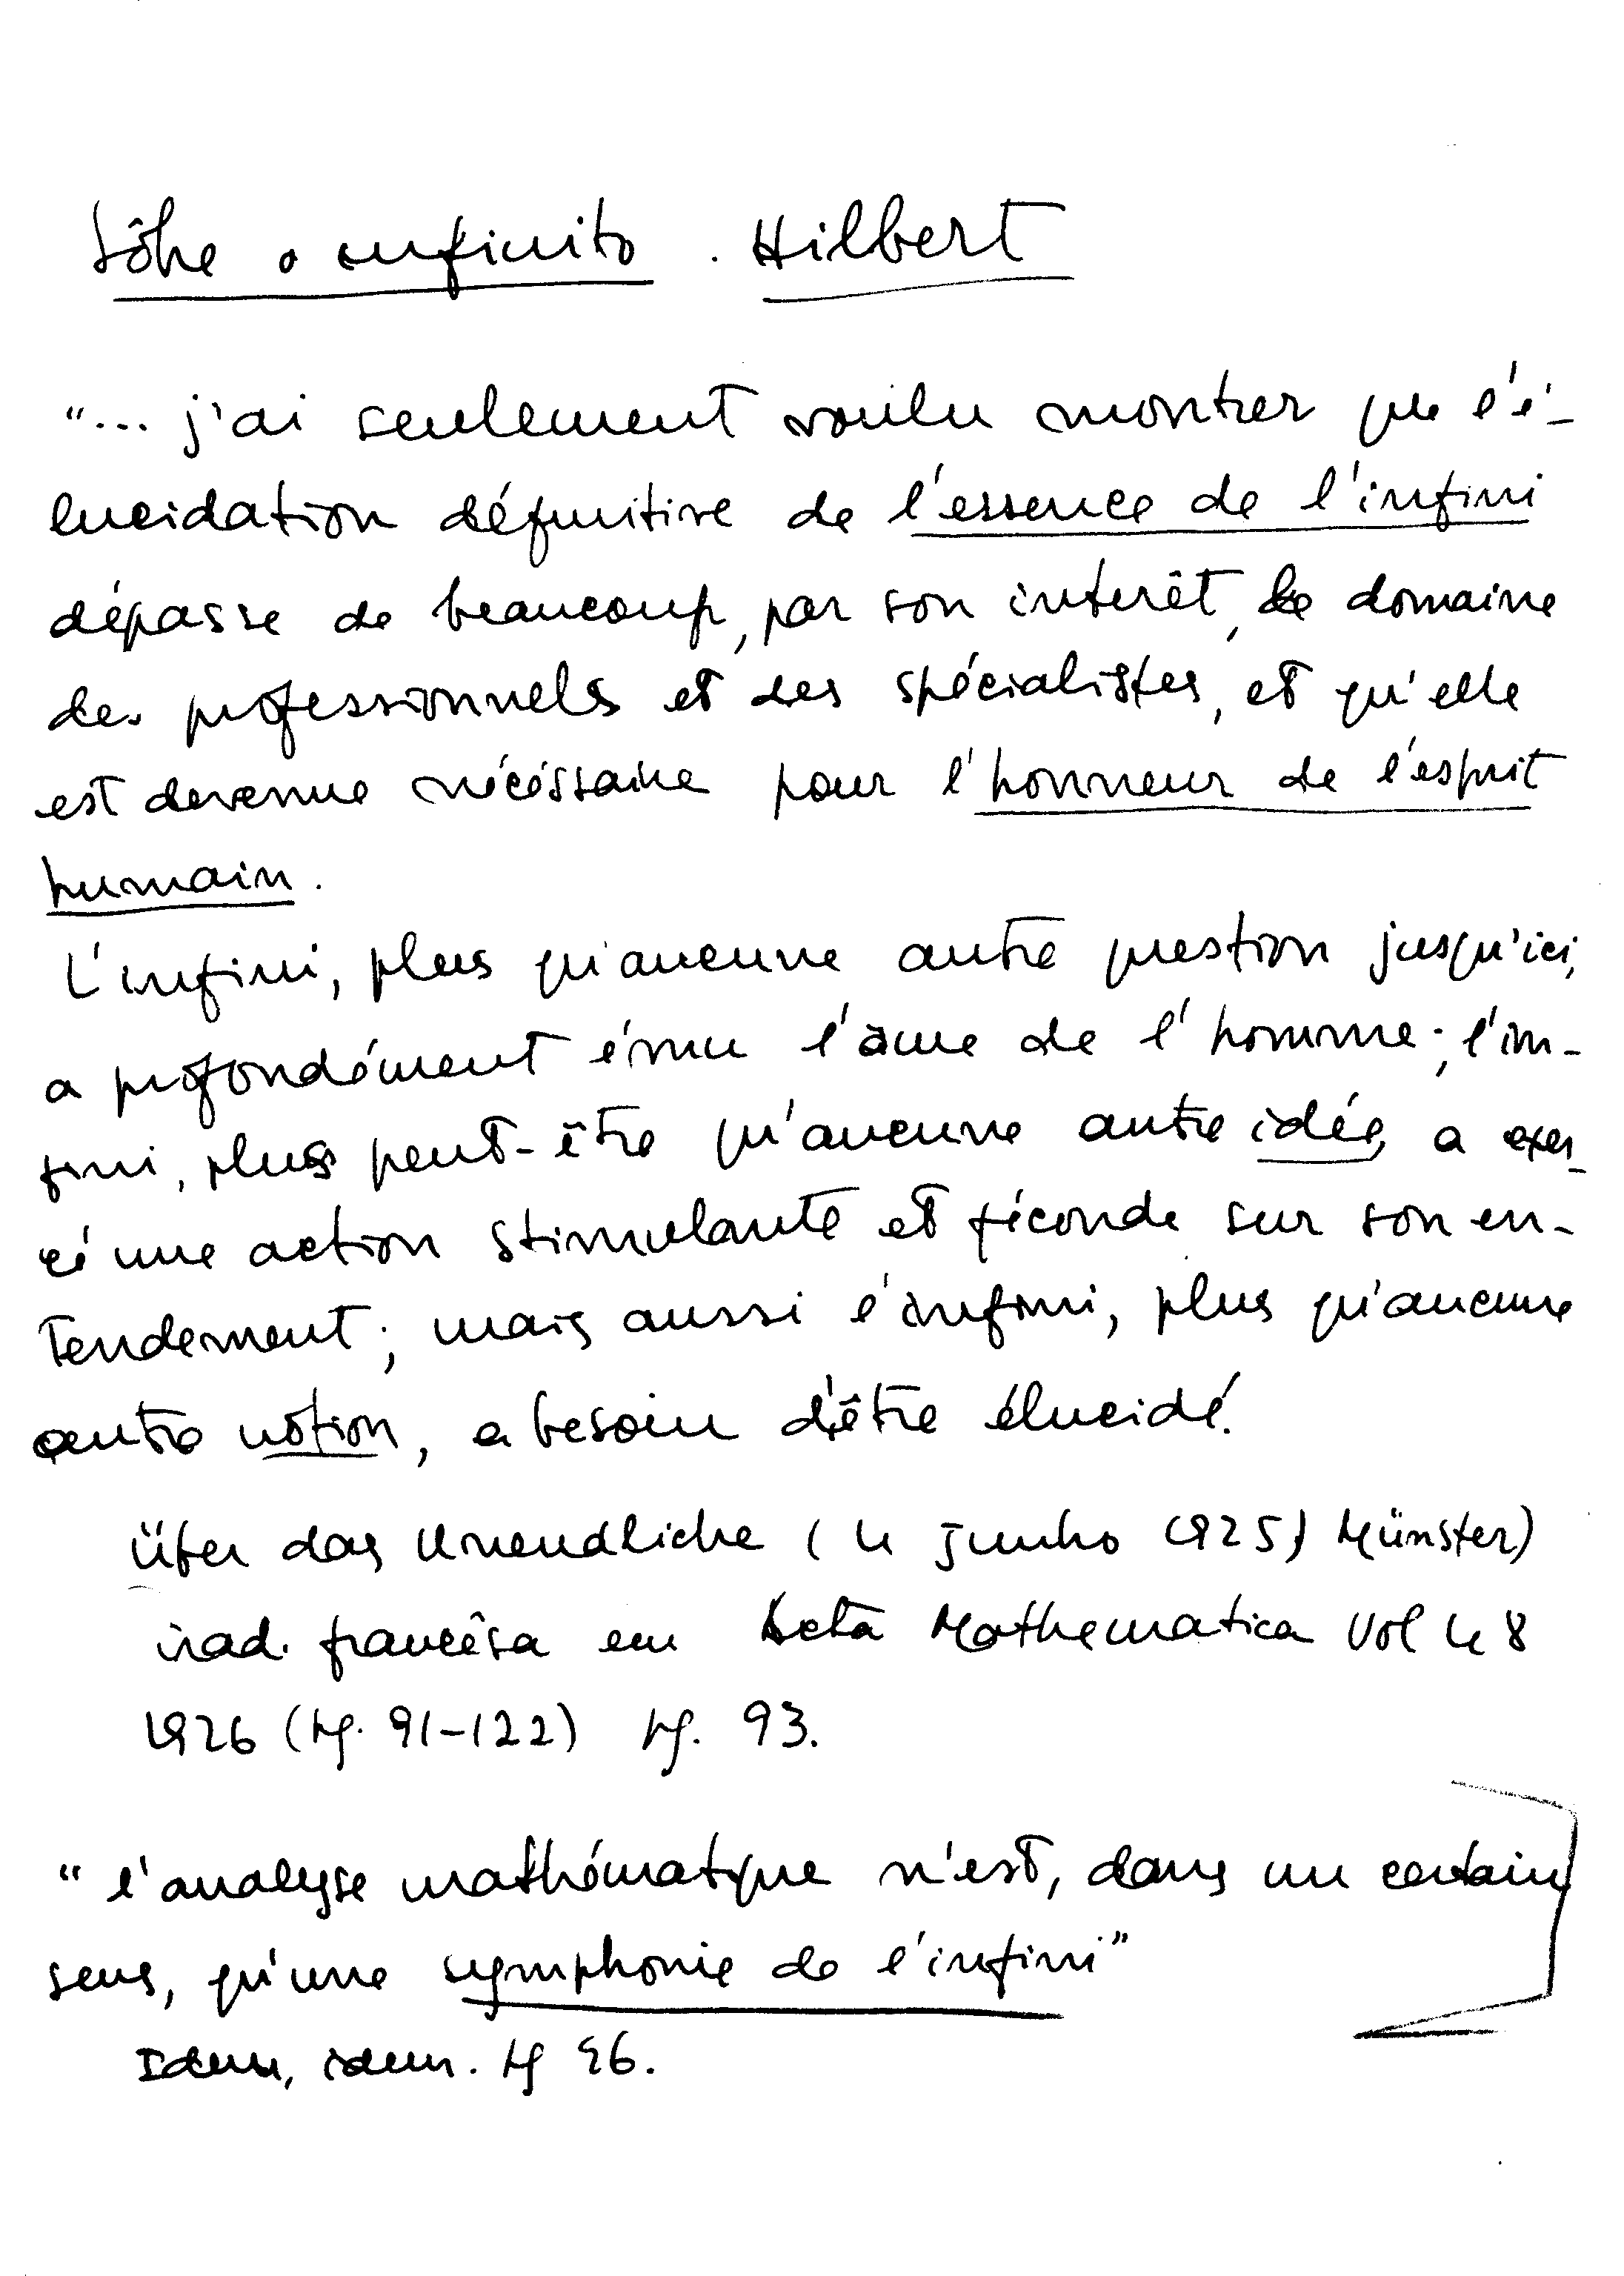 Sôbre o infinito. Hilbert
"... j'ai seulement voulu montrer que l'é-
lucidation définitive de l'essence de l'infini
dépasse de beaucoup, par son interêt, le domaine
des professionnels et des spécialistes, et qu'elle
est devenue nécéssaire pour l'honneur de l'esprit
humain.
L'infini, plus qu'aucune autre question jusqu'ici,
a profondément ému l'âme de l'homme; l'in-
fini, plus peut-être qu'aucune autre idée, a exer-
cé une action stimulante et féconde sur son en-
tendement; mais aussi l'infini, plus qu'aucune
autre notion, a besoin d'être élucidé.
Über das Unendliche (4 junho 1925, Münster)
trad. francêsa em Acta Mathematica Vol 48
1926 (pg. 91-122) pg. 93.
"l'analyse mathématique n'est, dans un certain
sens, qu'une symphonie de l'infini"
Idem, idem. pg 96.